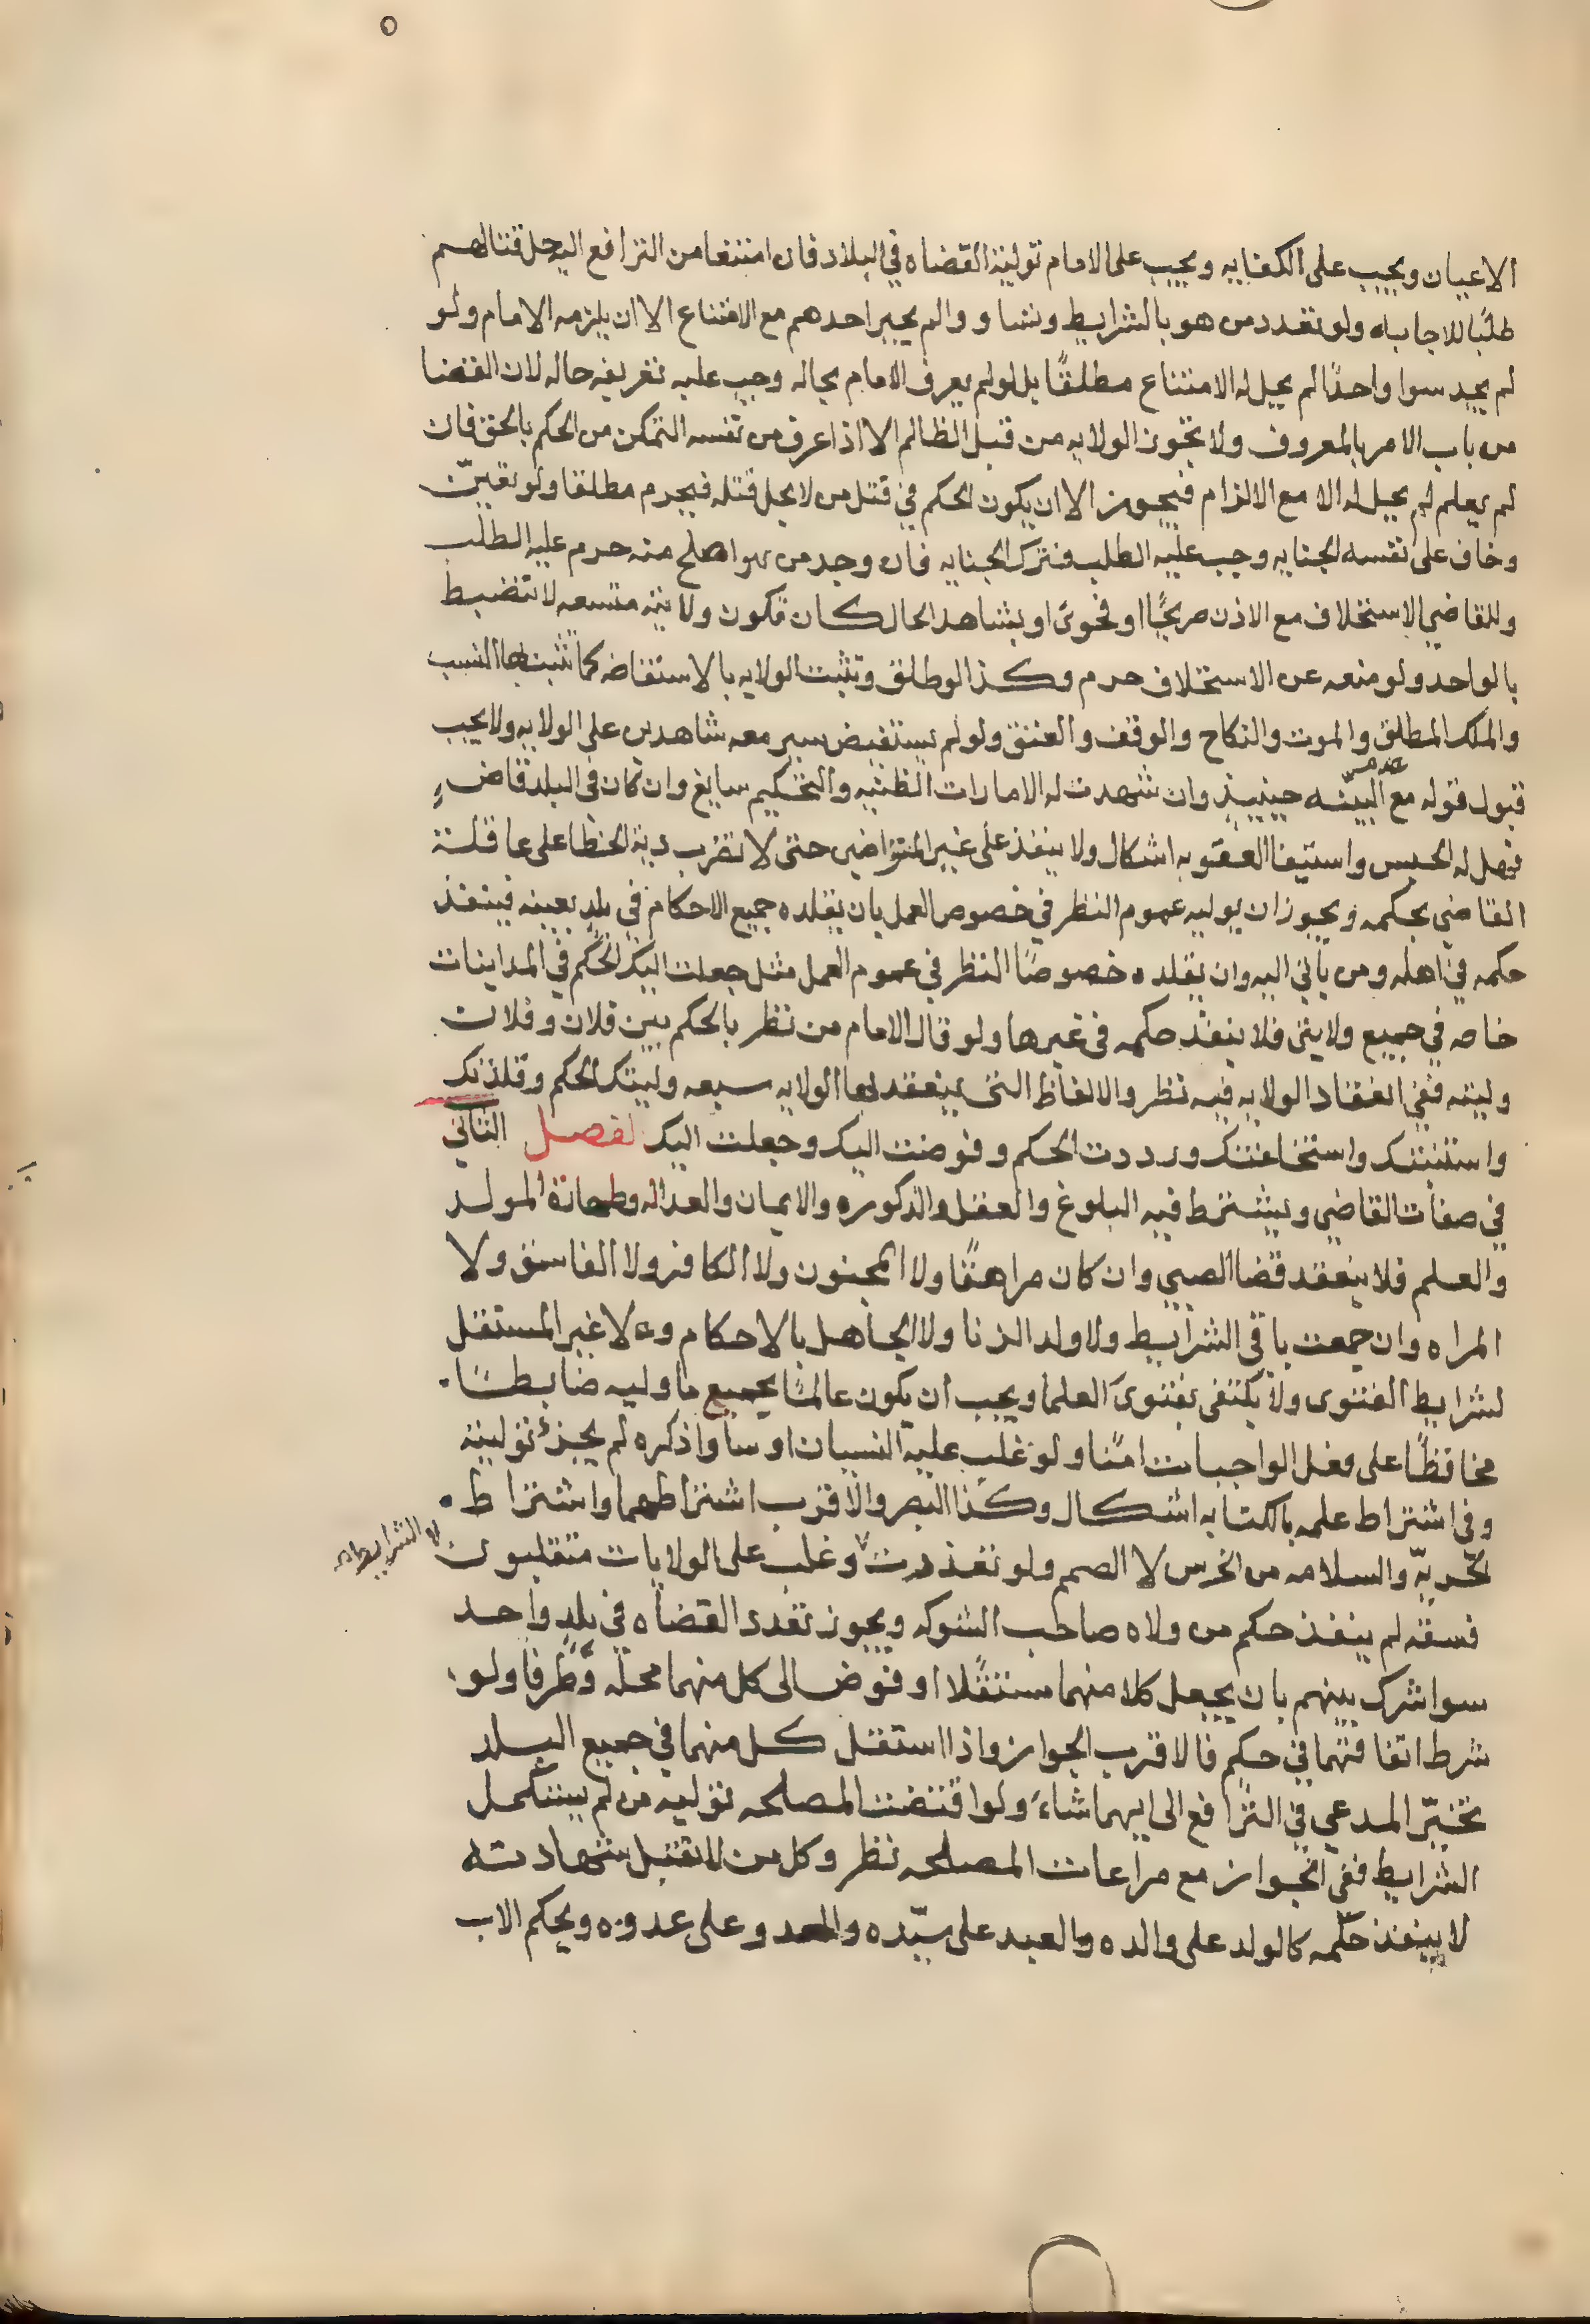 الاعيان ويجب على الكفايه ويجب على الامام تولية القضاه في البلاد فان امتنعا من الترافع اليه حل قتالهم
طلبًا للاجابه ولو تعدد من هو بالشرايط وتساووا لم يجبر احدهم مع الامتناع الا ان يلزمه الامام ولو
لم يجد سوا واحدًا لم يحل له الامتناع مطلقًا بل لو لم يعرف الامام بحاله وجب عليه تعريفه حاله لان القضا
من باب الامر بالمعروف ولا تجوز الولايه من قبل الظالم الا اذا عرف من نفسه التمكن من الحكم بالحق فان
لم يعلم لم يحل له الا مع الالزام فيجوز الا ان يكون الحكم في قتل من لا يحل قتله فيحرم مطلقا ولو تعيّن
وخاف على نفسه الجنايه وجب عليه الطلب فترك الجنايه فان وجد من هو اصلح منه حرم عليه الطلب
وللقاضي الاستخلاف مع الاذن صريحًا او فحوى او بشاهد الحال كان تكون ولايته متسعه لا تنضبط
بالواحد ولو منعه عن الاستخلاف حرم وكذا لو طلق وتثبت الولايه بالاستفاضه كما تثبت بها النسب
والملك المطلق والموت والنكاح والوقف والعتق ولو لم يستفيض سير معه شاهدين على الولايه ولا يجب
قبول قوله مع عدم البينه حينيذٍ وان شهدت له الامارات الظنيه والتحكيم سايغ وان كان في البلد قاضٍ
فهل له الحبس واستيفا العقوبه اشكال ولا ينفذ على غير المتراضين حتى لا تضرب دية الخطا على عاقلة
القاضي بحكمه ويجوز ان يوليه عموم النظر في خصوص العمل بان يقلده جميع الاحكام في بلد بعينه فينفذ
حكمه في اهله ومن ياتي اليه وان يقلده خصوصًا النظر في عموم العمل مثل جعلت اليك الحكم في المداينات
خاصه في جميع ولايتى فلا ينفذ حكمه فى غيرها ولو قال الامام من نظر بالحكم بين فلان وفلان
وليته ففي انعقاد الولايه فيه نظر والالفاظ التى ينعقد بها الولايه سبعه وليتك الحكم وقلدتك
واستنبتك واستخلفتك ورددت الحكم وفوضت اليك وجعلت اليك لفصل الثاني
في صفات القاضي ويشترط فيه البلوغ والعقل والذكوره والايمان والعداله وطهارة المولد
والعلم فلا ينعقد قضا الصبي وان كان مراهقًا ولا المجنون ولا الكافر ولا الفاسق ولا
المراه وان جمعت باقي الشرايط ولا ولد الزنا ولا الجاهل بالاحكام ولا غير المستقل
لشرايط الفتوى ولا يكتفى بفتوى العلما ويجب ان يكون عالمًا بجميع ما وليه ضابطًا
محافظًا على فعل الواجبات امينًا ولو غلب عليه النسيان او ساوا ذكره لم يجز توليته
وفى اشتراط علمه بالكتابه اشكال وكذا البصر والاقرب اشتراطهما واشتراط
الحريّه والسلامه من الخرس لا الصمم ولو تعذرت وغلب على الولايات متغلبون
الشرايط
فسقه لم ينفذ حكم من ولاه صاحب الشوكه ويجوز تعدد القضاه في بلدٍ واحد
سوا شرك بينهم بان يجعل كلا منهما مستقلا او فوض الى كل منهما محله وطرفا ولو
شرط اتفاقهما في حكم فالاقرب الجواز واذا استقل كل منهما في جميع البلد
تخيّر المدعي في الترافع الى ايهما شاءَ ولو اقتضت المصلحه توليه من لم يستكمل
الشرايط ففي الجواز مع مراعات المصلحه نظر وكل من لا تقبل شهادته
لا ينفذ حكمه كالولد على والده والعبد على سيّده والعدو على عدوه ويحكم الاب